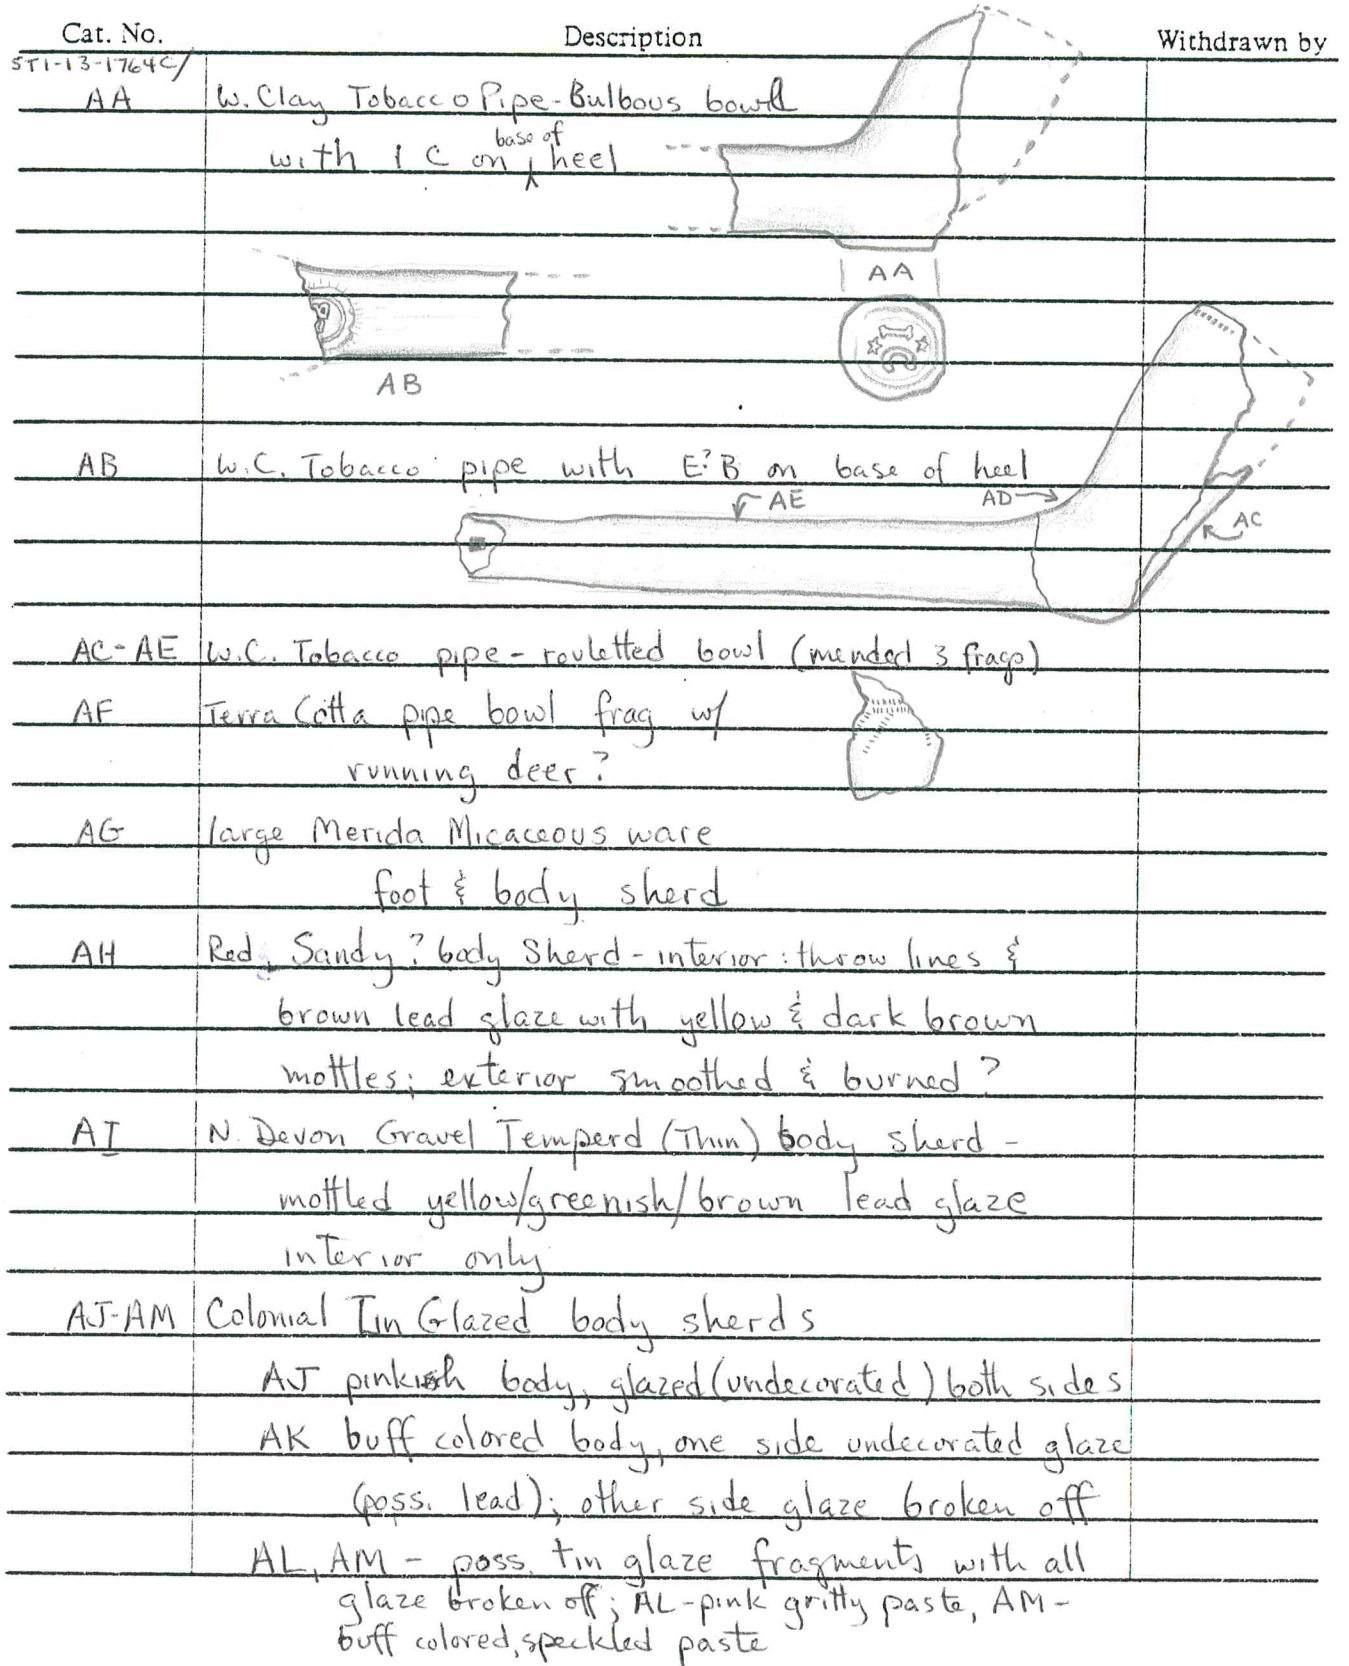 Cat. No. Description Withdrawn by
ST1-13-1764C/
AA W. Clay Tobacco Pipe-Bulbous bowl
base of
with I C on heel
AA
AB
AB W.C. Tobacco pipe with E?B on base of heel
AE AD
AC
AC-AE W.C. Tobacco pipe - rouletted bowl (mended 3 frags)
AF Terra Cotta pipe bowl frag w/
running deer?
AG large Merida Micaceous ware
foot & body sherd
AH Red, Sandy? body Sherd - interior: throw lines &
brown lead glaze with yellow & dark brown
mottles; exterior smoothed & burned?
AI N. Devon Gravel Temperd (Thin) body sherd -
mottled yellow/greenish/brown lead glaze
interior only
AJ-AM Colonial Tin Glazed body sherds
AJ pinkish body, glazed (undecorated) both sides
AK buff colored body, one side undecorated glaze
(poss. lead); other side glaze broken off
AL, AM - poss. tin glaze fragments with all
glaze broken off; AL-pink gritty paste, AM-
buff colored, speckled paste